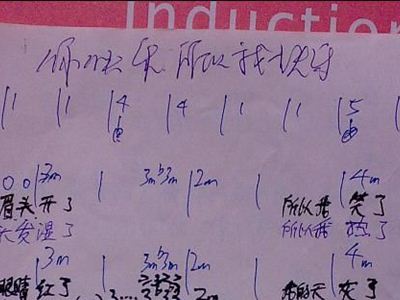 Induction
你快乐所以我快乐
1 1 4 4 1 1 5
3m 3m b3m 2m 4m
眉头开了 所以我 笑了
头发湿了 所以我 热了
3m 3m b3m 2m 4m
眼睛红了 我的天 灰了